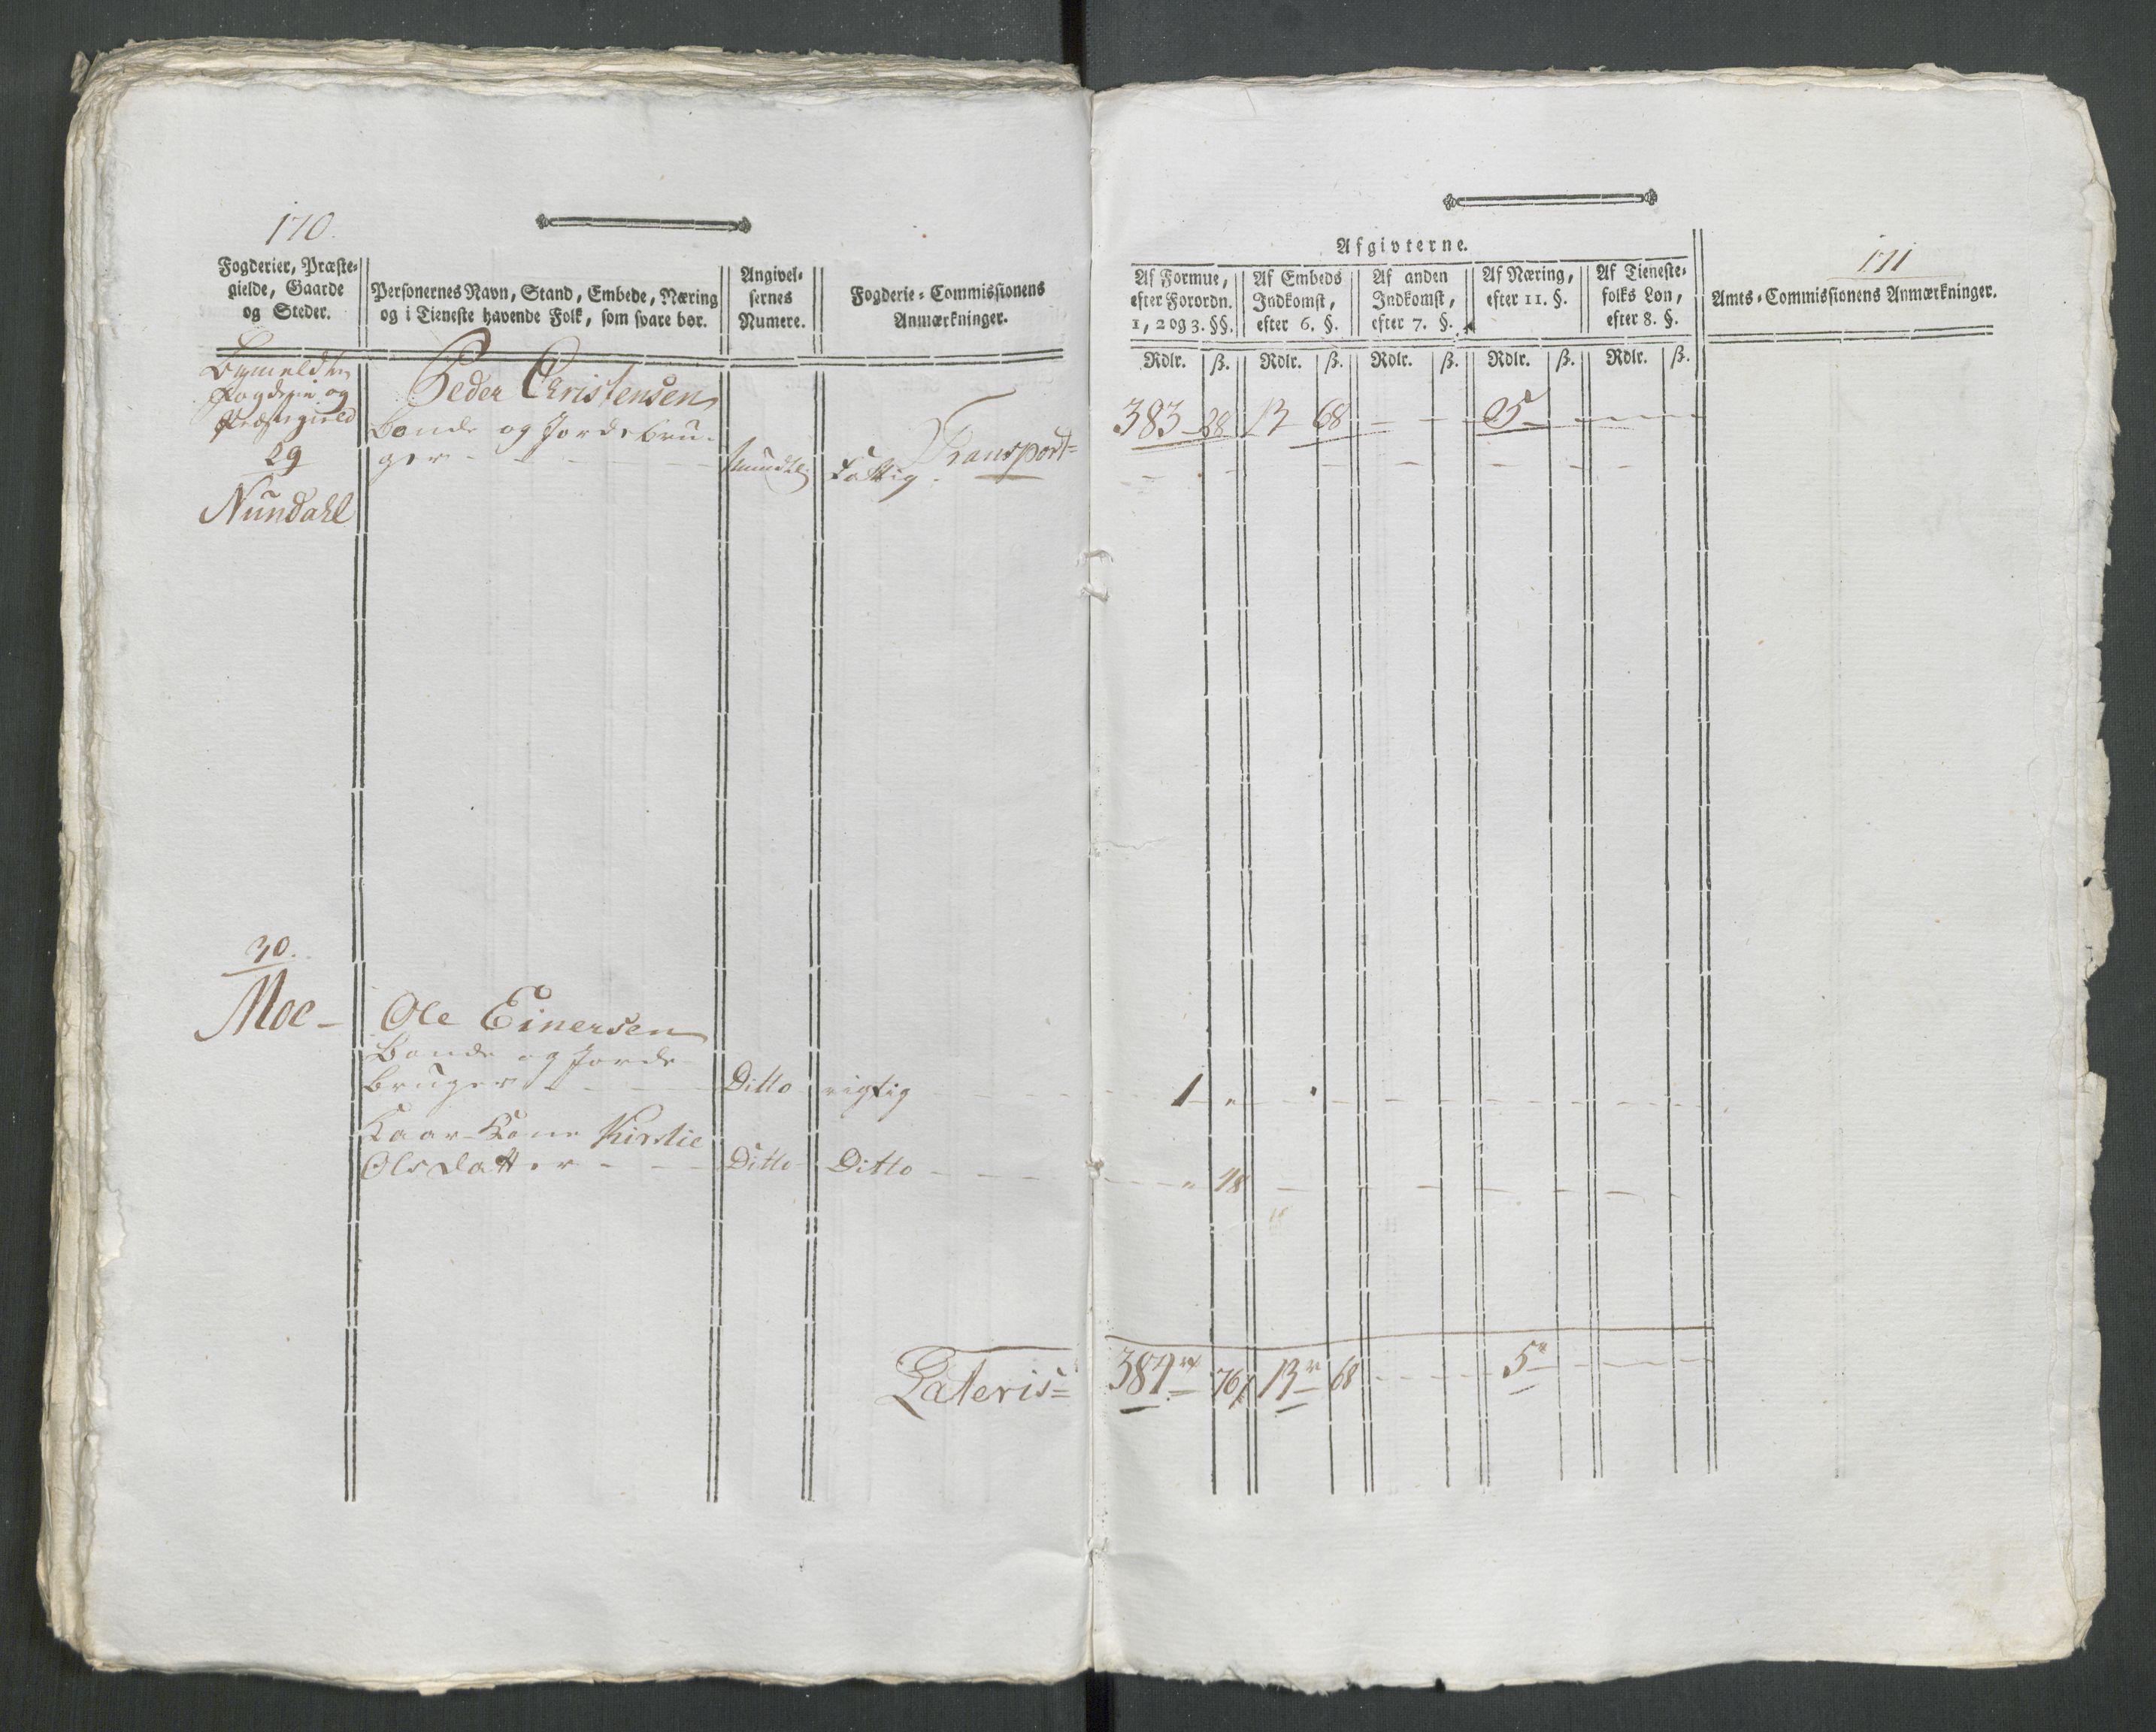 170.
Fogderier, Præste-
gielde, Gaarde
og Steder.
Personernes Navn, Stand, Embede, Næring
og i Tieneste havende Folk, som svare bør.
Angivel-
sernes
Numere.
Fogderie-Commissionens
Anmærkninger.
Bemeldte
Fogderie og
Præstegield
29
Nundahl
Peder Christensen
Bonde og Jordebru-
ger - - - mundtl. fattig.
Transport
30.
Moe -
Ole Einersen
Bonde og Jorde-
bruger - - - Ditto rigtig
Kaar-Kone Kirstie
Olsdatter - - - Ditto - Ditto -
Lateris
171
Afgivterne.
Af Formue,
efter Forordn.
1, 2 og 3. §§.
Af Embeds
Indkomst,
efter 6. §.
Af anden
Indkomst,
efter 7. §.
Af Næring,
efter 11. §.
Af Tieneste-
folks Løn,
efter 8. §.
Amts-Commissionens Anmærkninger.
Rdlr. ß. Rdlr. ß. Rdlr. ß. Rdlr. ß. Rdlr. ß.
383 - 28 13 - 68 - - 5 - - -
1 - - -
" 48 - - -
384 76 13 68 - - - 5 - - -